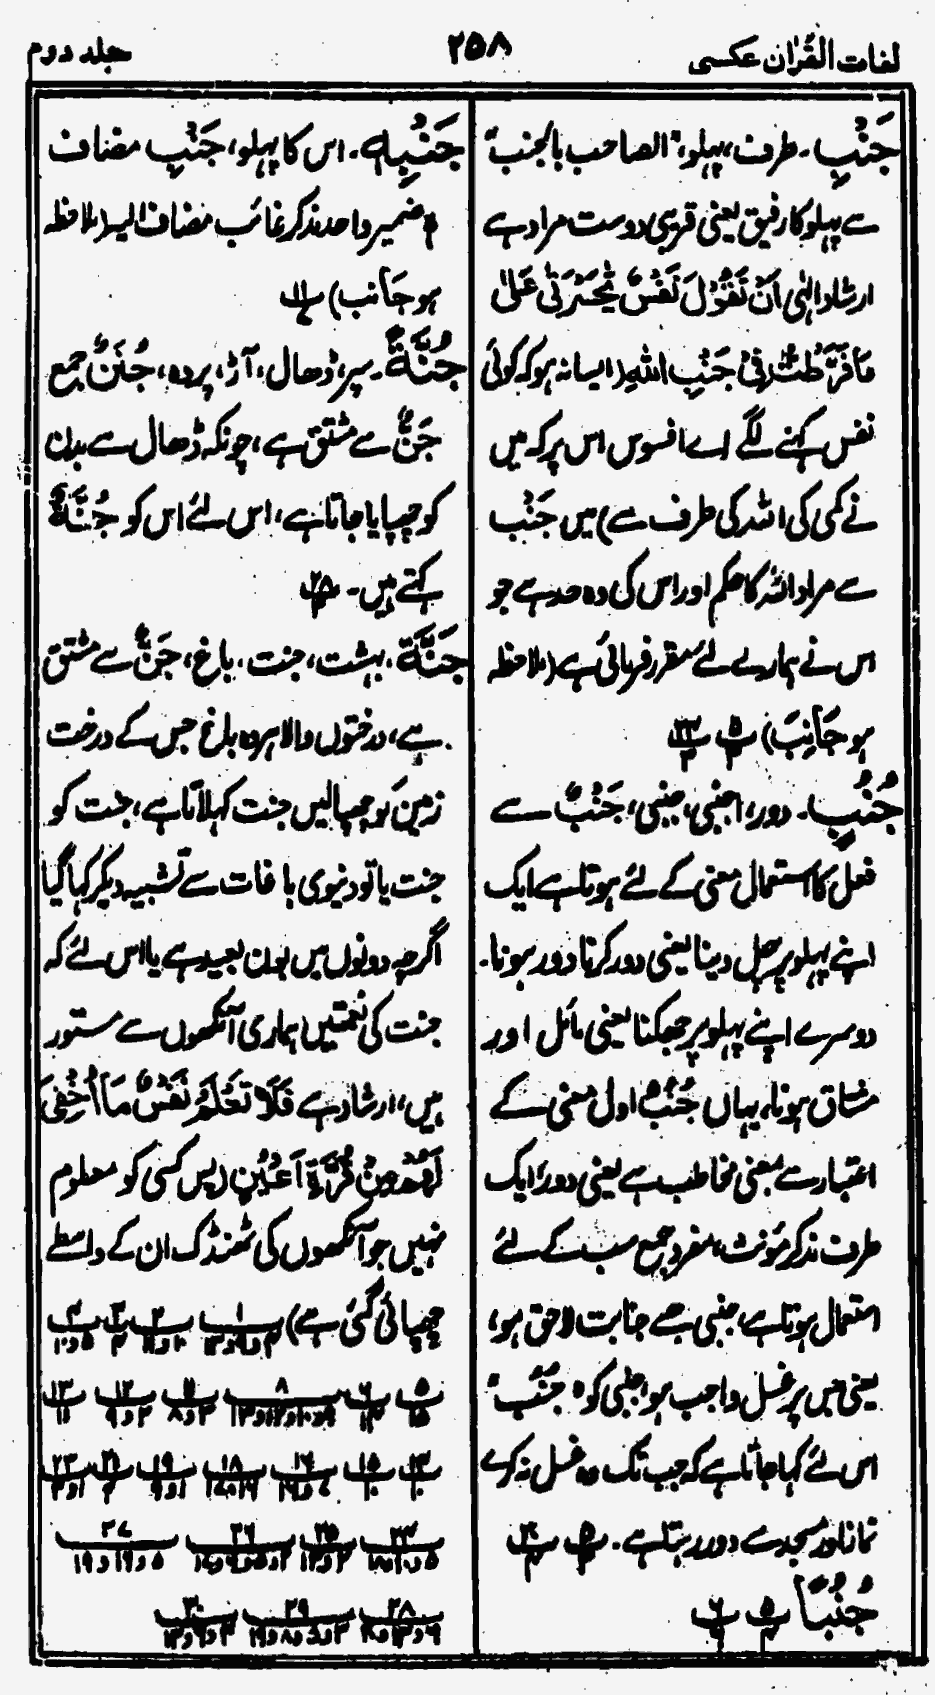 لغات القرآن عکسی
۲۵۸
جلد دوم
جَنْبِ۔ طرف، پہلو، "الصاحب بالجنب"
سے پہلو کا رفیق یعنی قریبی دوست مراد ہے
ارشاد الٰہی اَنْ تَقُوْلَ نَفْسٌ یّٰحَسْرَتٰی عَلٰی
مَا فَرَّطْتُّ فِیْ جَنْۢبِ اللّٰہِ (ایسا نہ ہو کہ کوئی
نفس کہنے لگے اے افسوس اس پر کہ میں
نے کمی کی اللہ کی طرف سے) میں جَنْب
سے مراد اللہ کا حکم اور اس کی وہ حد ہے جو
اس نے ہمارے لئے مقرر فرمائی ہے (ملاحظہ
ہو جَانِبَ)
جُنُبٍ۔ دور، اجنبی، جنبی، جَنْبٌ سے
فعل کا استعمال معنی کے لئے ہوتا ہے ایک
اپنے پہلو پر چل دینا یعنی دور کرنا دور ہونا۔
دوسرے اپنے پہلو پر جھکنا یعنی مائل اور
مشتاق ہونا، یہاں جُنُبٌ اول معنی کے
اعتبار سے بمعنی مخاطب ہے یعنی دور، ایک
طرف مذکر مؤنث، مفرد جمع سب کے لئے
استعمال ہوتا ہے، جنبی جسے جنابت لاحق ہو،
یعنی جس پر غسل واجب ہو اجنبی کو "جُنُب"
اس لئے کہا جاتا ہے کہ جب تک وہ غسل نہ کرے
نماز اور مسجد سے دور رہتا ہے۔
جُنُبًا
جَنْبِہٖ۔ اس کا پہلو، جَنْبِ مضاف
ہ ضمیر واحد مذکر غائب مضاف الیہ (ملاحظہ
ہو جَانب)
جُنَّةً۔ سپر، ڈھال، آڑ، پردہ، جُنَنٌ جمع
جَنٌّ سے مشتق ہے، چونکہ ڈھال سے بدن
کو چھپایا جاتا ہے، اس لئے اس کو جُنَّةٌ
کہتے ہیں۔ ۲۸
جَنَّة۔ بہشت، جنت، باغ، جَنٌّ سے مشتق
ہے، درختوں والا ہر وہ باغ جس کے درخت
زمین کو چھپا لیں جنت کہلاتا ہے، جنت کو
جنت یا تو دنیوی باغات سے تشبیہ دیکر کہا گیا
اگرچہ دونوں میں بون بعید ہے یا اس لئے کہ
جنت کی نعمتیں ہماری آنکھوں سے مستور
ہیں، ارشاد ہے فَلَا تَعْلَمُ نَفْسٌ مَّا اُخْفِیَ
لَہُمْ مِنْ قُرَّةِ اَعْیُنٍ (پس کسی کو معلوم
نہیں جو آنکھوں کی ٹھنڈک ان کے واسطے
چھپائی گئی ہے)